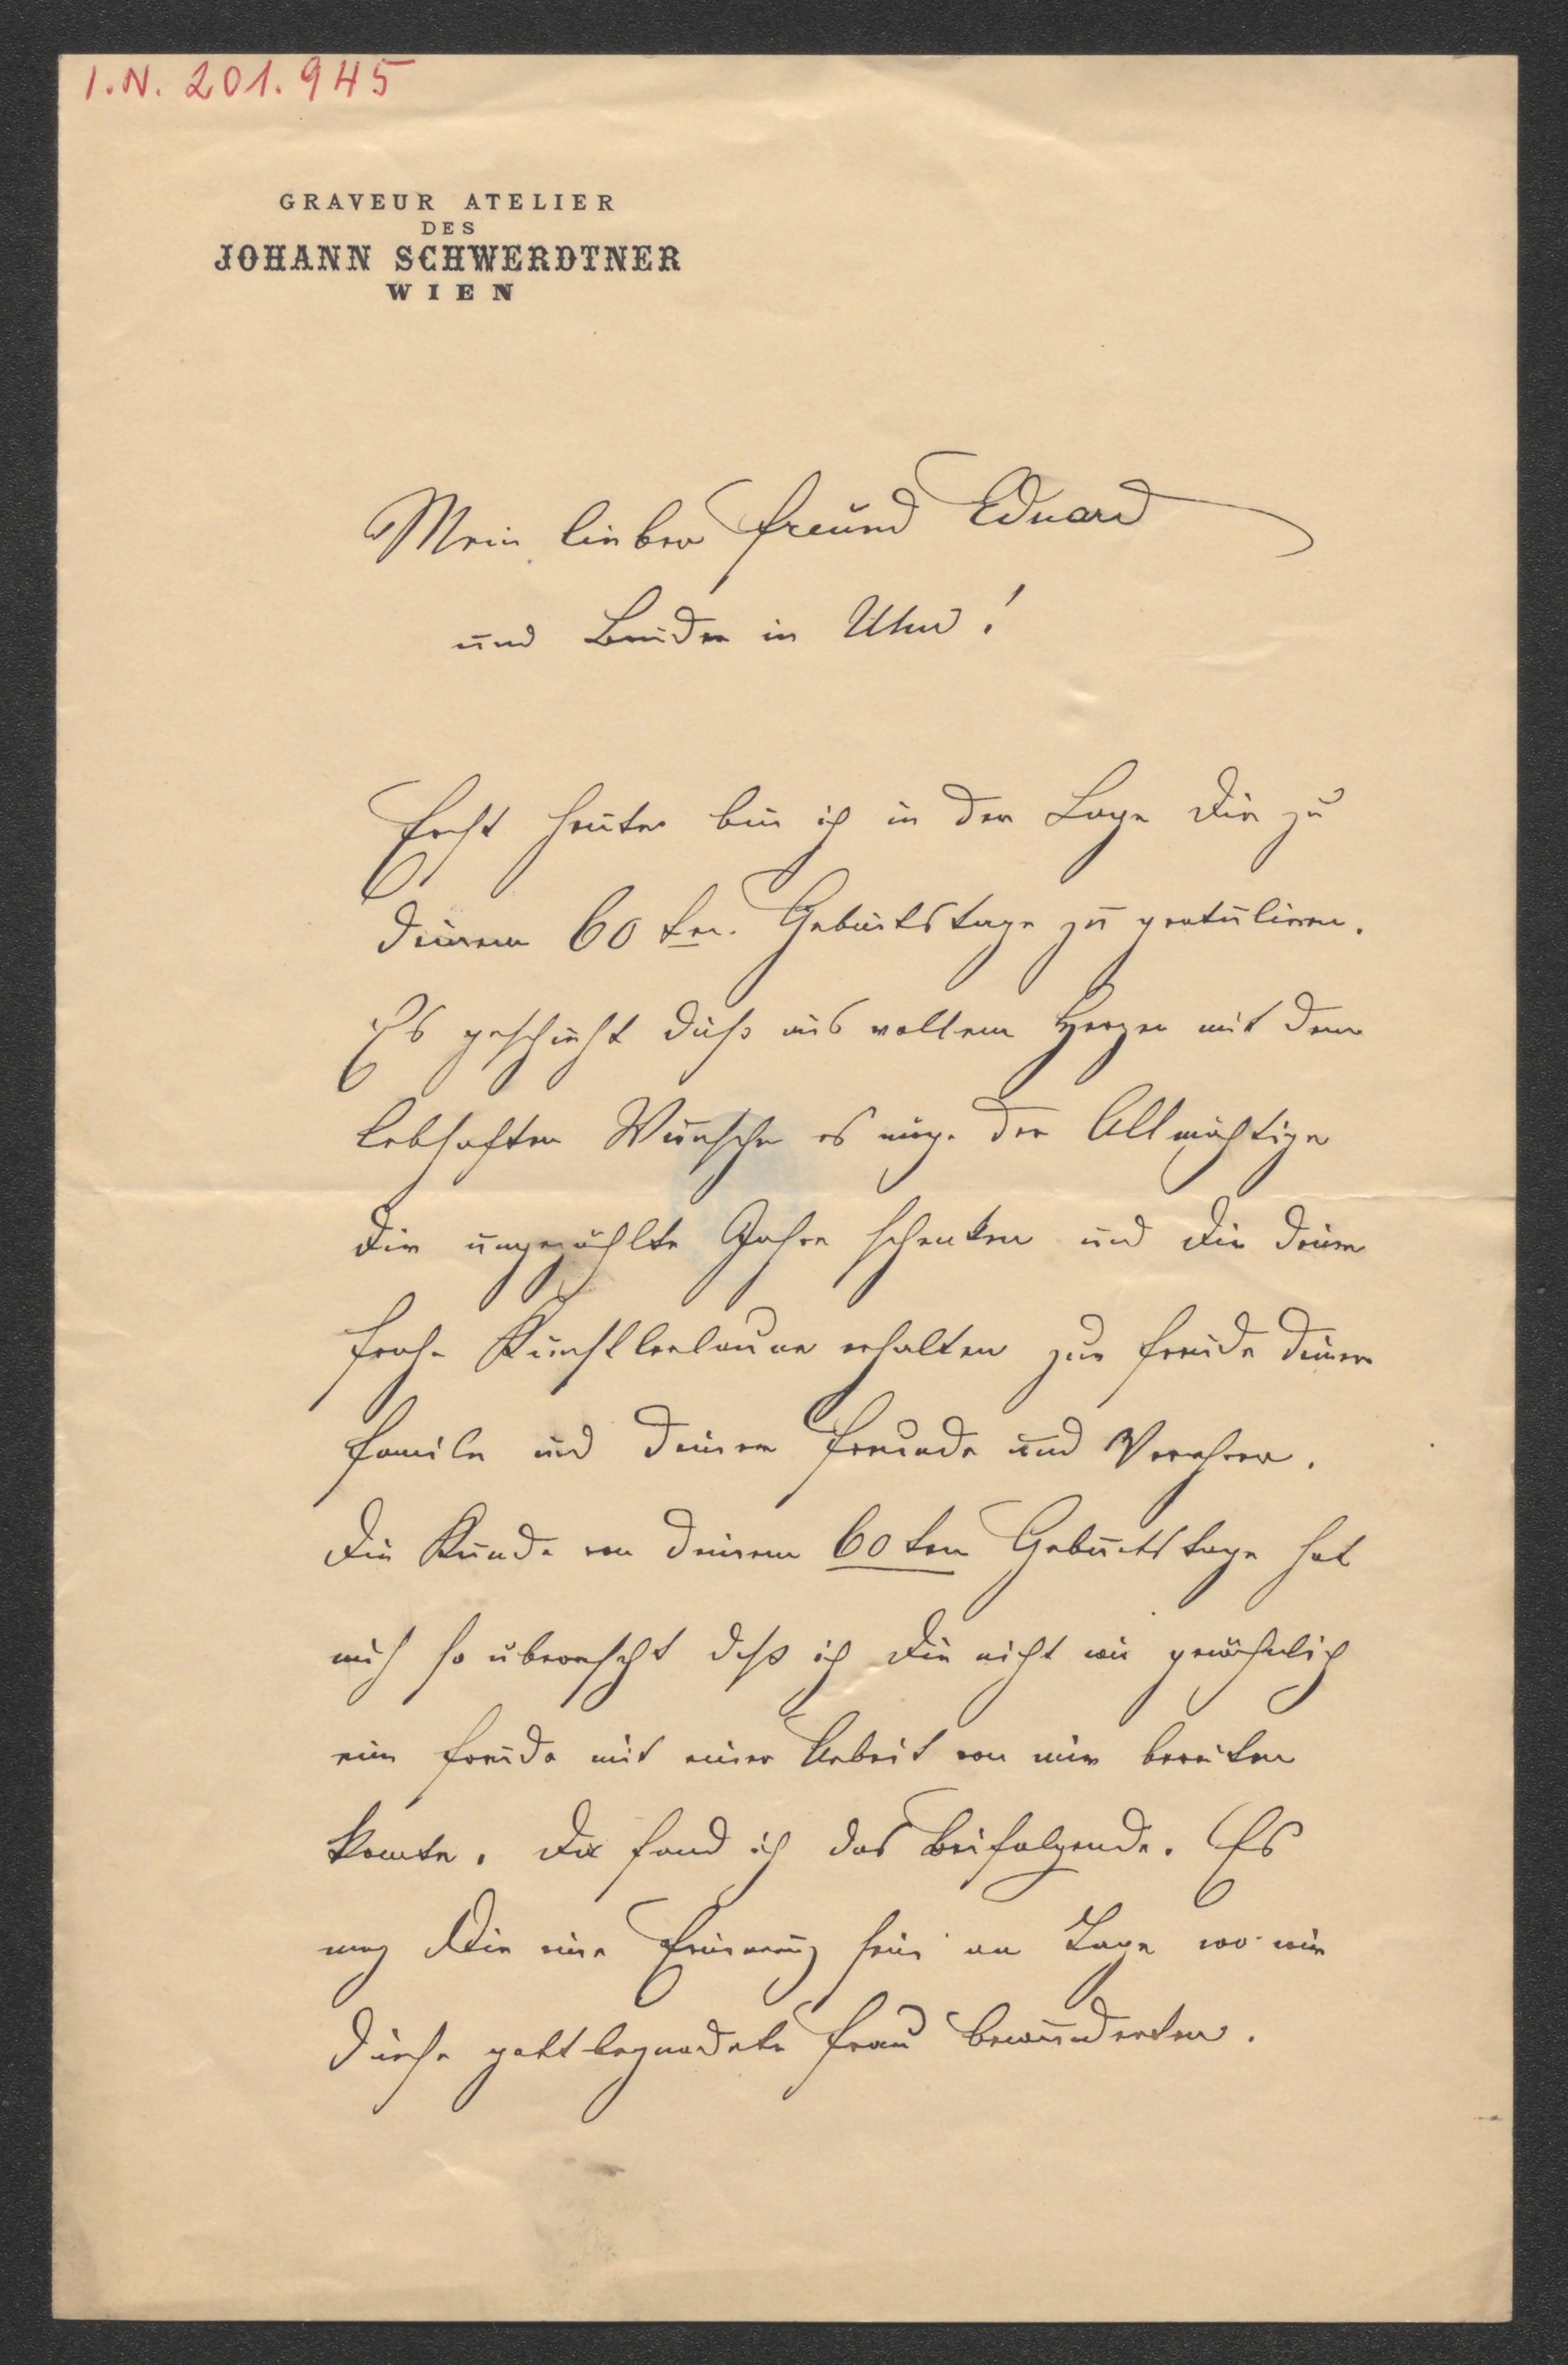 I.N. 201.945
GRAVEUR ATELIER
DES
JOHANN SCHWERDTNER
WIEN
Mein lieber Freund Eduard
und Bruder in Uhu!
Erst heute bin ich in der Lage Dir zu
Deinem 60 ten. Geburtstage zu gratulieren.
Es geschieht dieß aus vollem Herzen mit dem
lebhaften Wunsche es möge der Allmächtige
Dir ungezählte Jahre schenken und Dir Deine
frohe Künstlerlaune erhalten zur Freude Deiner
Familie und Deiner Freunde und Verehrer.
Die Kunde von Deinem 60 ten Geburtstage hat
mich so überrascht daß ich Dir nicht wie gewöhnlich
eine Freude mit einer Arbeit von mir bereiten
konnte. Da fand ich das Beifolgende. Es
mag Dir eine Erinnerung sein an Tage wo wir
diese gottbegnadete Frau bewunderten.